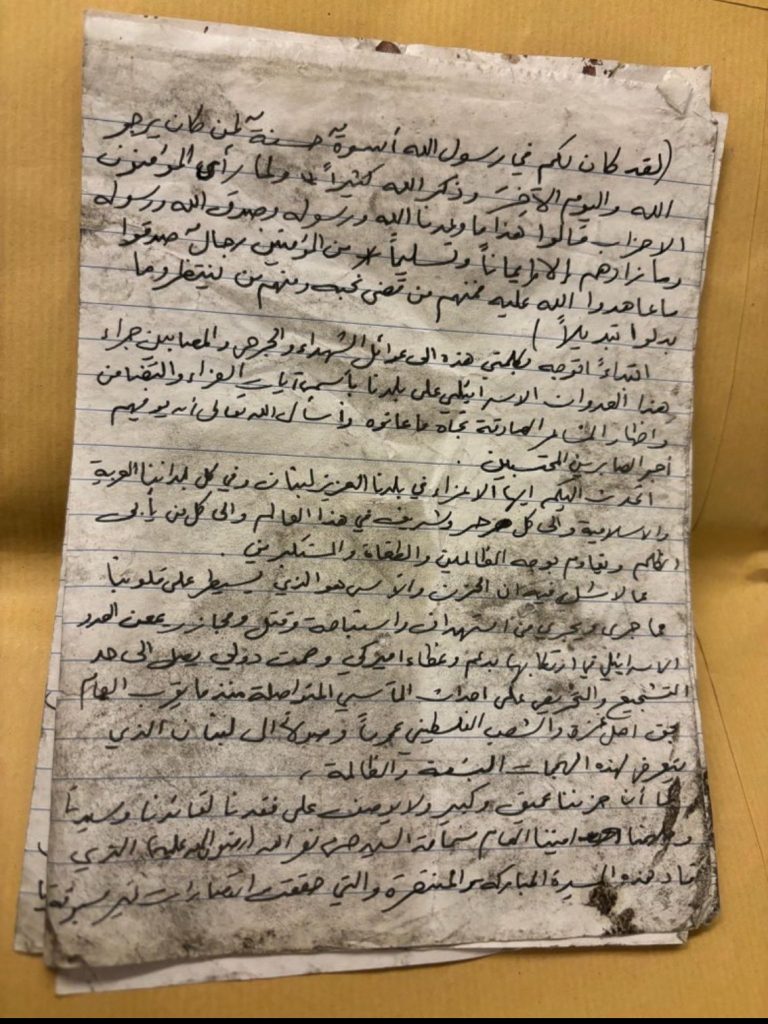 (لقد كان لكم في رسول الله أسوةٌ حسنةٌ لمن كان يرجو
الله واليوم الآخرَ وذكر الله كثيراً * ولما رأى المؤمنون
الاحزاب قالوا هذا ما وعدنا الله ورسوله وصدق الله ورسوله
وما زادهم إلا إيماناً وتسليماً * من المؤمنين رجالٌ صدقوا
ما عاهدوا الله عليه فمنهم من قضى نحبه ومنهم من ينتظر وما
بدلوا تبديلاً )
ابتداءً اتوجه بكلمتي هذه الى عوائل الشهداء والجرحى والمصابين جراء
هذا العدوان الاسرائيلي على بلدنا بأسمى آيات العزاء والتضامن
واظهار المشاعر الصادقة تجاه ما عانوه وأسأل الله تعالى أن يوفيهم
أجر الصابرين المحتسبين .
اتحدث اليكم ايها الاعزاء في بلدنا العزيز لبنان وفي كل بلداننا العربية
والاسلامية والى كل حر وشريف في هذا العالم والى كل من يأبى
الظلم ويقاوم بوجه الظالمين والطغاة والمستكبرين .
مما لا شك فيه ان الحزن والأسى هو الذي يسيطر على قلوبنا
مما جرى ويجري من استهداف واستباحة وقتل ومجازر يمعن العدو
الاسرائيلي في ارتكابها بدعم وغطاء اميركي وصمت دولي يصل الى حد
التشجيع والتحريض على احداث المآسي المتواصلة منذ ما يقرب العام
بحق اهل غزة والشعب الفلسطيني عموماً وصولاً الى لبنان الذي
يتعرض لهذه الهجمات البشعة والظالمة ،
كما أن حزننا عميق وكبير ولا يوصف على فقدنا لقائدنا وسيدنا
اميننا العام سماحة السيد حسن نصر الله (رضوان الله عليه) الذي
قاد هذه المسيرة المباركة والمنتصرة والتي حققت انتصارات غير مسبوقة